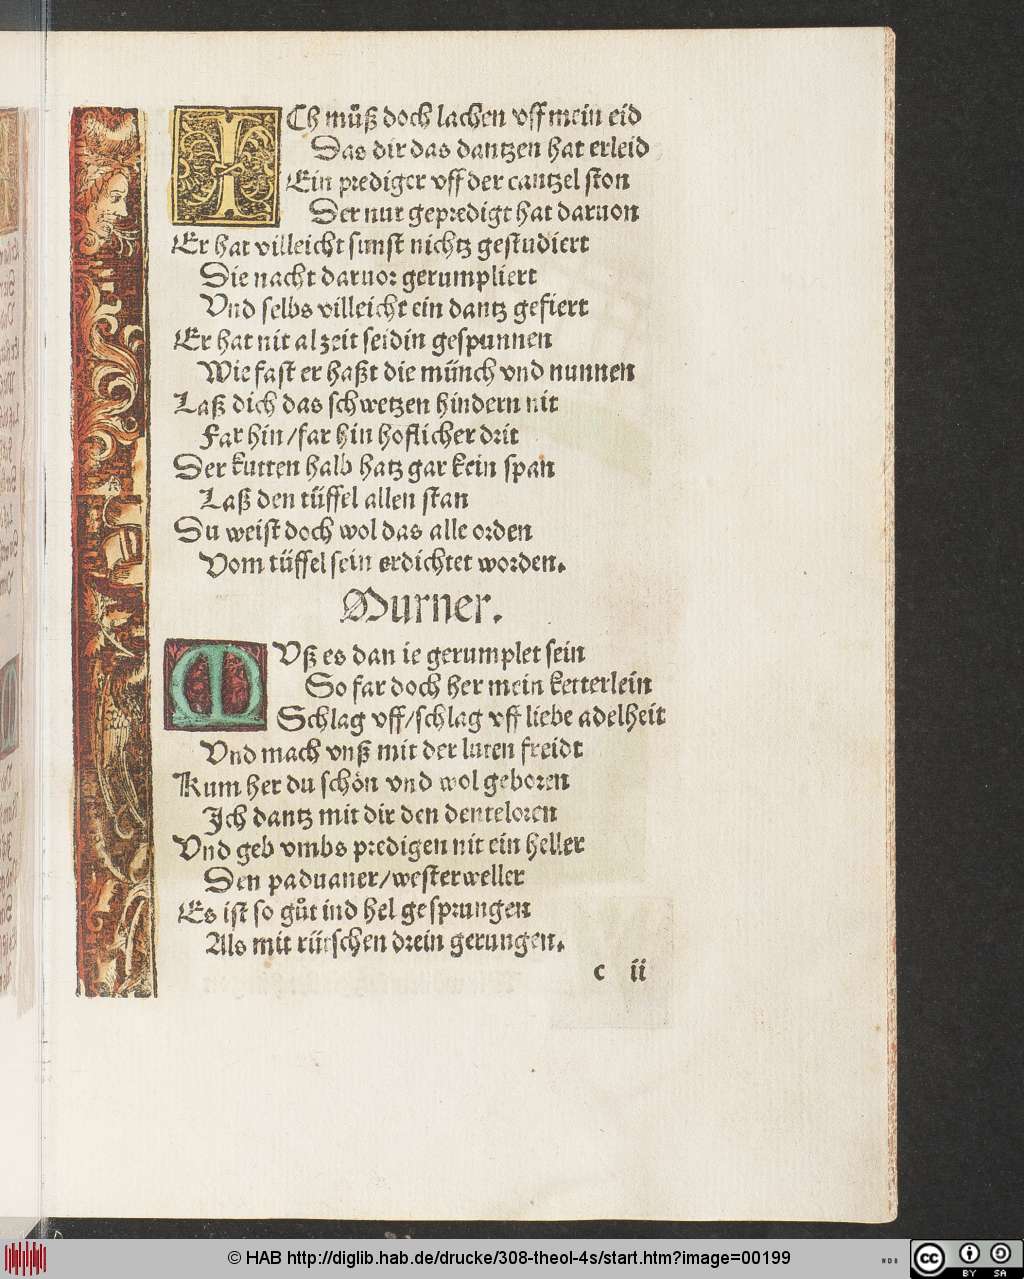 ICh můß doch lachen vff mein eid
Das dir das dantzen hat erleid
Ein prediger vff der cantzel ston
Der nur gepredigt hat daruon
Er hat villeicht sunst nichtz gestudiert
Die nacht daruor gerumpliert
Vnd selbs villeicht ein dantz gefiert
Er hat nit al zeit seidin gespunnen
Wie fast er haßt die münch vnd nunnen
Laß dich das schwetzen hindern nit
Far hin/far hin hoflicher drit
Der kutten halb hatz gar kein span
Laß den tüffel allen stan
Du weist doch wol das alle orden
Vom tüffel sein erdichtet worden.
Murner.
MVß es dan ie gerumplet sein
So far doch her mein ketterlein
Schlag vff/schlag vff liebe adelheit
Vnd mach vnß mit der luten freidt
Kum her du schön vnd wol geboren
Ich dantz mit dir den denteloren
Vnd geb vmbs predigen nit ein heller
Den paduaner/westerweller
Es ist so gůt ind hel gesprungen
Als mit rütschen drein gerungen.
c ii
© HAB http://diglib.hab.de/drucke/308-theol-4s/start.htm?image=00199
cc BY SA